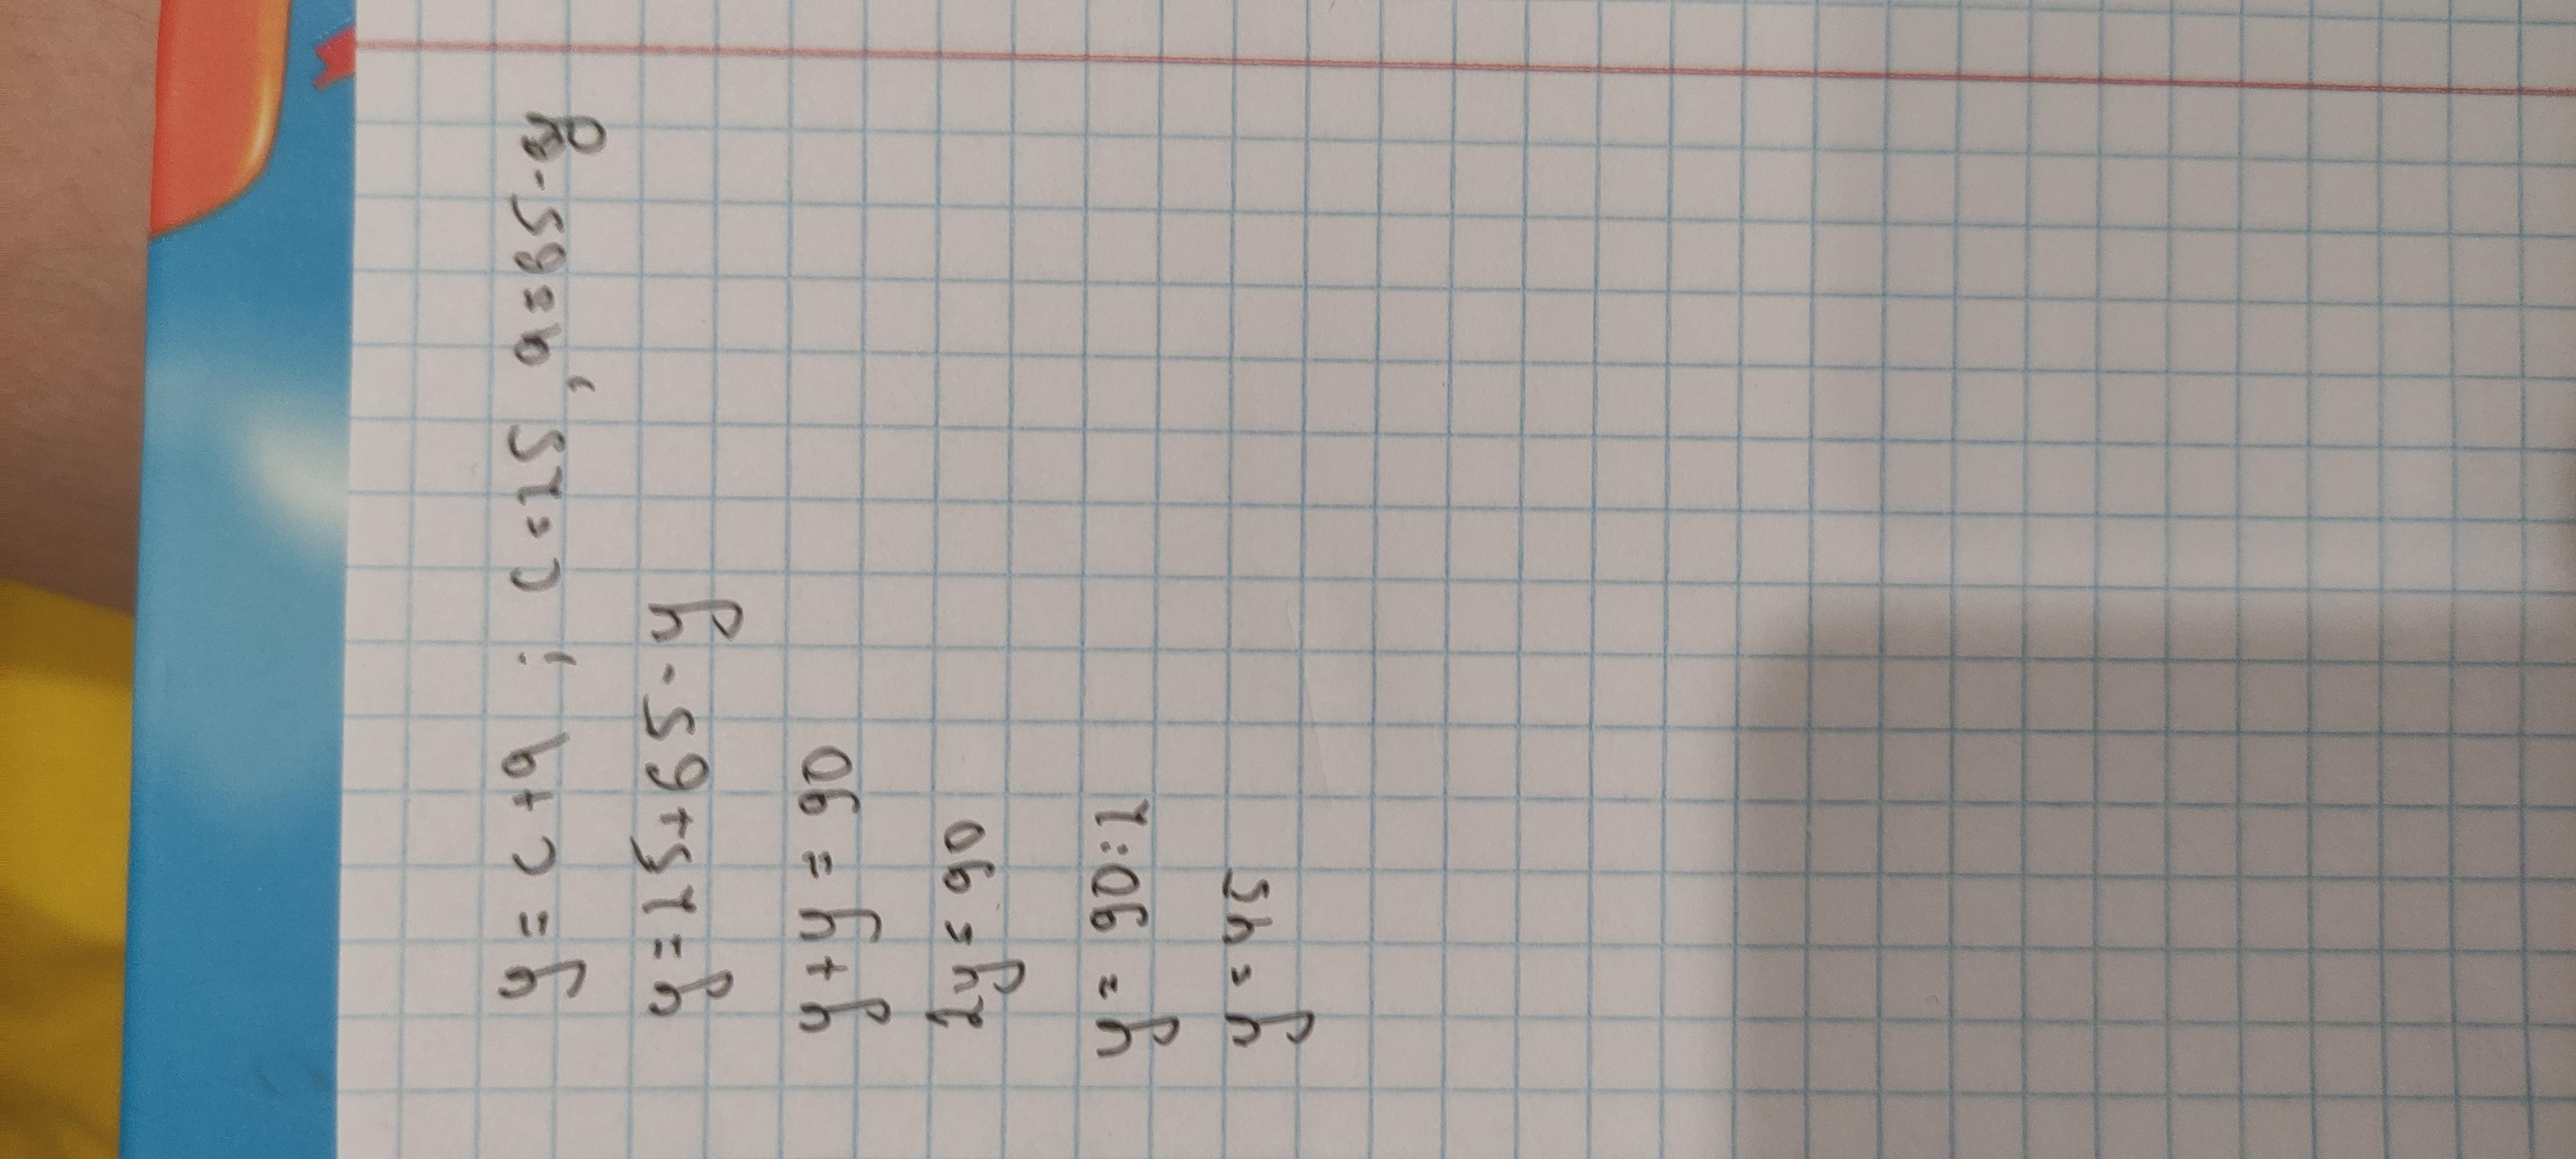 y = c + a ; c = 25 , a = 65 - y
y = 25 + 65 - y
y + y = 90
2y = 90
y = 90 : 2
y = 45